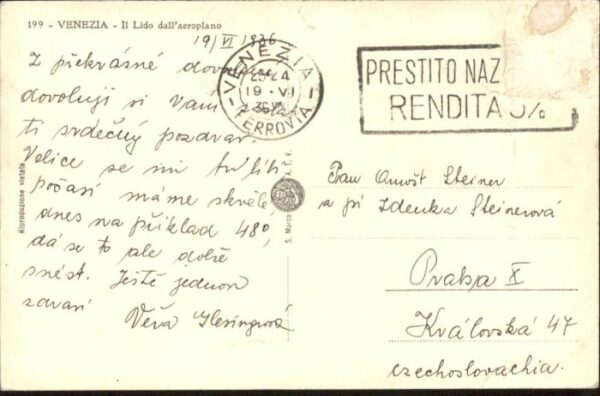 199 - VENEZIA - Il Lido dall'aeroplano
19/VI 1936
Z překrásné dovolené
dovoluji si Vám
ti srdečný pozdrav.
Velice se mi tu líbí
počasí máme skvělé
dnes na příklad 48°,
dá se to ale dobře
snést. Ještě jednou
zdraví
Věra
VENEZIA
23-24
19·VI
FERROVIA
PRESTITO NAZ
RENDITA 5%
Riproduzione vietata
S. Marco
A. T. V.
Pan Arnošt Steiner
a pí Zdenka Steinerová
Praha X
Královská 47
czechoslovachia.